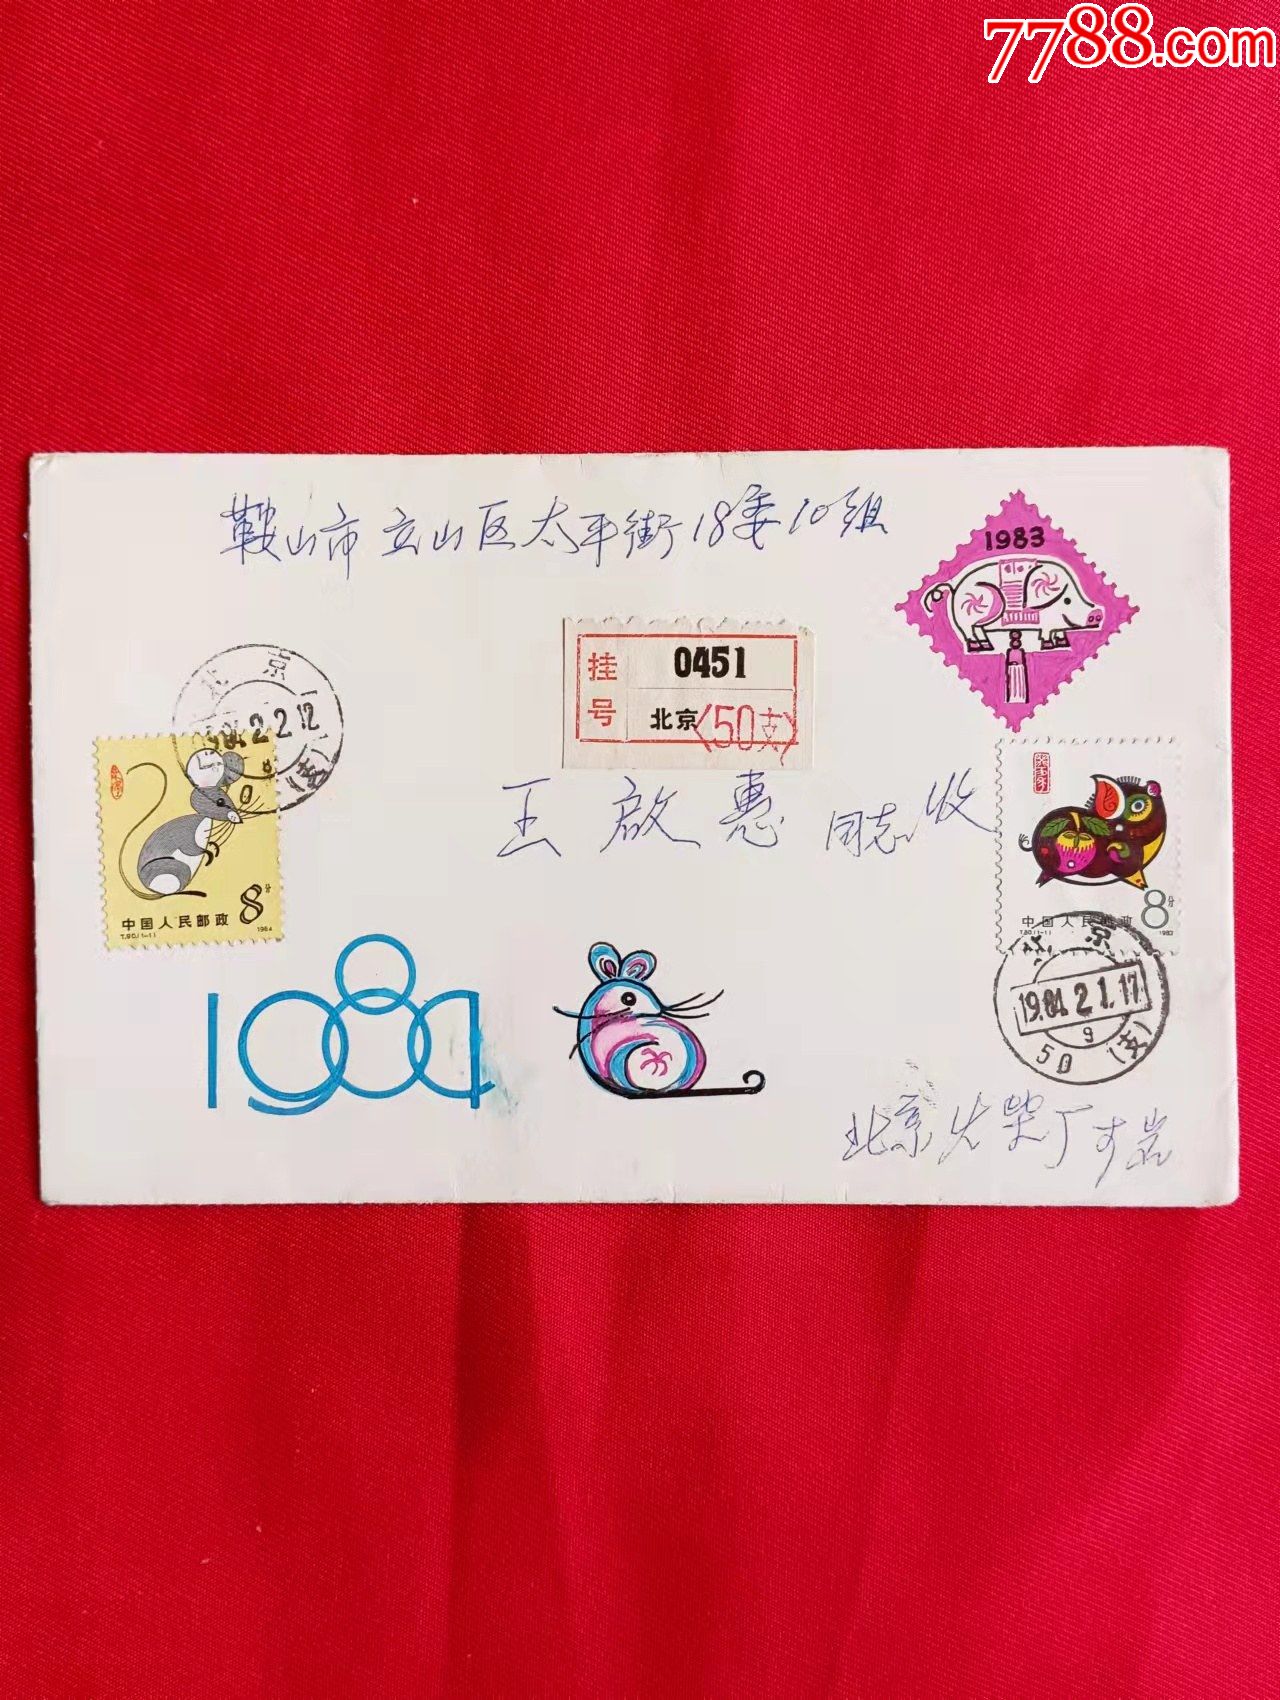 7788.com
鞍山市立山区太平街18委10组
1983
挂号
0451
北京(50支)
北京
1984.2.2.12
8分
中国人民邮政
T.90.(1-1)
1984
王啟惠同志收
8分
中国人民邮政
T.80.(1-1)
1983
北京
1984.2.1.17
50(支)
1984
北京火柴厂